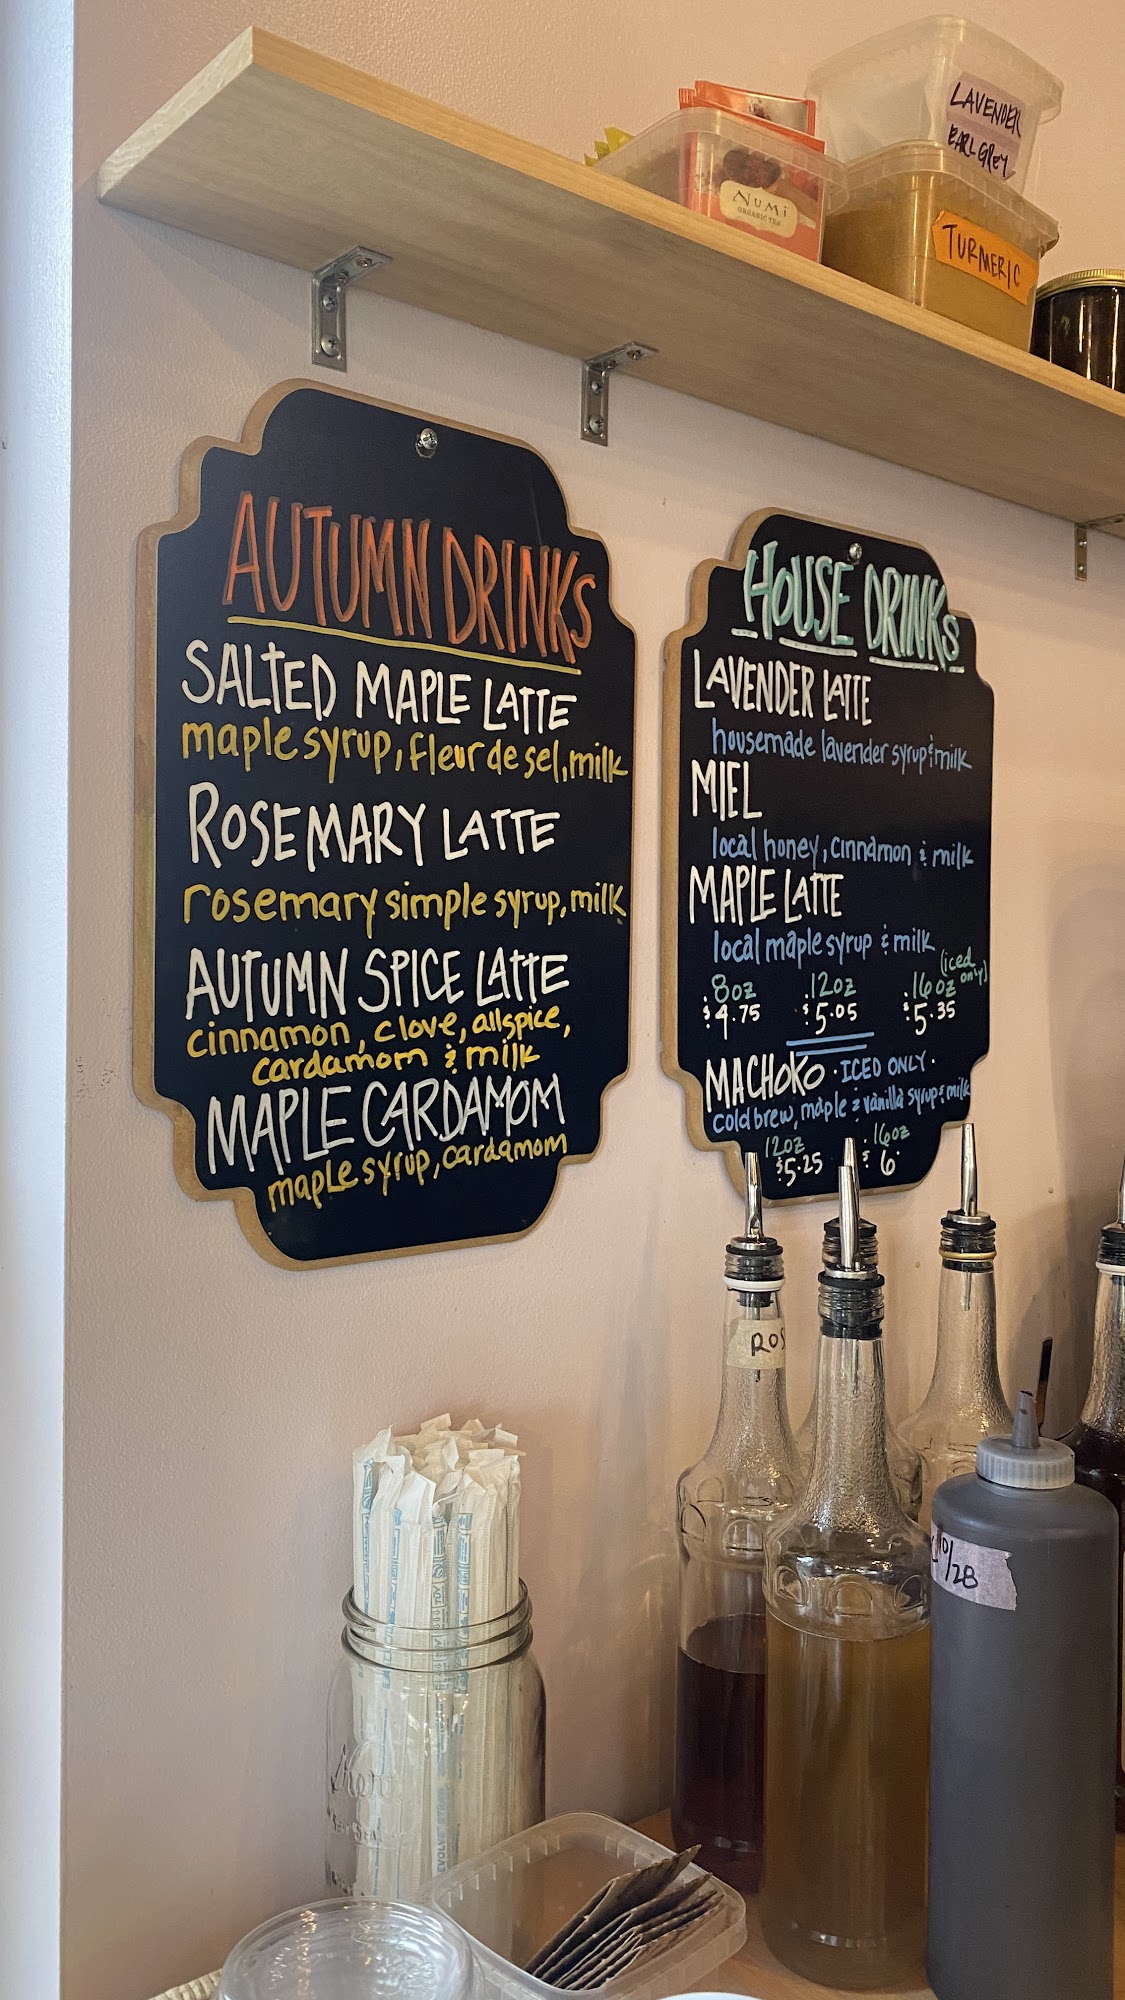 LAVENDER
EARL GREY
NUMi
ORGANIC TEA
TURMERIC
AUTUMN DRINKS
SALTED MAPLE LATTE
maple syrup, fleur de sel, milk
ROSEMARY LATTE
rosemary simple syrup, milk
AUTUMN SPICE LATTE
cinnamon, clove, allspice,
cardamom & milk
MAPLE CARDAMOM
maple syrup, cardamom
HOUSE DRINKS
LAVENDER LATTE
housemade lavender syrup & milk
MIEL
local honey, cinnamon & milk
MAPLE LATTE
local maple syrup & milk
8oz 12oz 16oz (iced only)
$4.75 $5.05 $5.35
MACHOKO · ICED ONLY ·
cold brew, maple & vanilla syrup & milk
12oz 16oz
$5.25 $6
ROS
10/28
Kerr